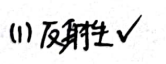 (1) 反射性 ✓